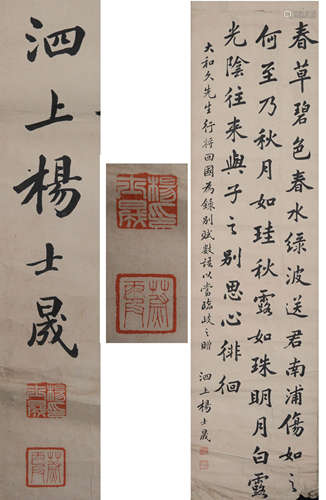 春草碧色春水綠波送君南浦傷如之
何至乃秋月如珪秋露如珠明月白露
光陰往來與子之別思心徘徊
大和久先生行將回國為錄別賦數語以當臨歧之贈
泗上楊士晟
泗上楊士晟